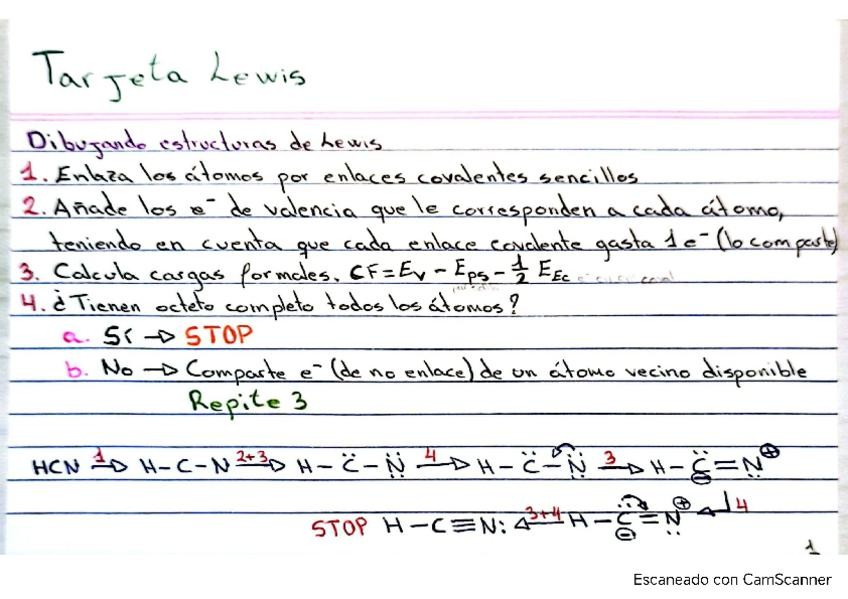 Tarjeta Lewis
Dibujando estructuras de Lewis
1. Enlaza los átomos por enlaces covalentes sencillos
2. Añade los e⁻ de valencia que le corresponden a cada átomo,
teniendo en cuenta que cada enlace covalente gasta 1e⁻ (lo comparte)
3. Calcula cargas formales. CF = Ev - Eps - ½ EEc
4. ¿Tienen octeto completo todos los átomos?
a. Sí → STOP
b. No → Comparte e⁻ (de no enlace) de un átomo vecino disponible
Repite 3
HCN 1→ H-C-N 2+3→ H-C̈-N̈ 4→ H-C̈-N̈ 3→ H-C̈=N̈ ⊕ ⊖
STOP H-C≡N: ←3+4 H-C̈=N̈ ⊕ ⊖ ← 4
1
Escaneado con CamScanner